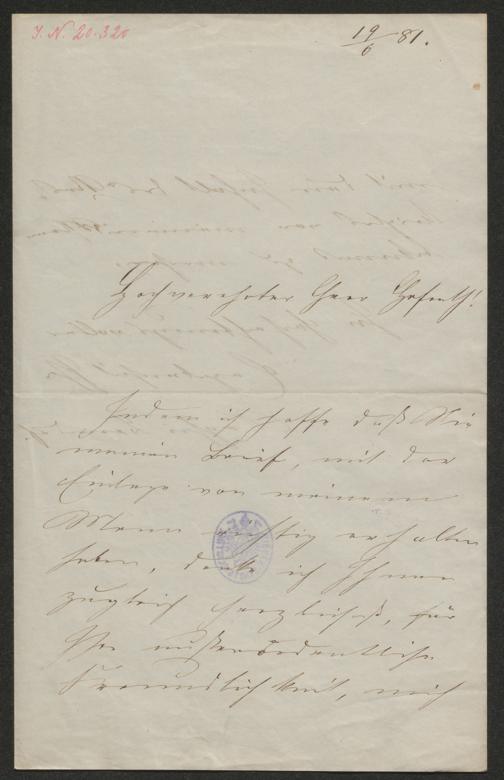 I. N. 20.320
19/6 81.
Hochverehrter Herr Hofrath!
Indem ich hoffe daß Sie
meinen Brief, mit der
Einlage von meinem
Mann richtig erhalten
haben, danke ich Ihnen
zugleich herzlichst, für
Ihre außerordentliche
Freundlichkeit, mich